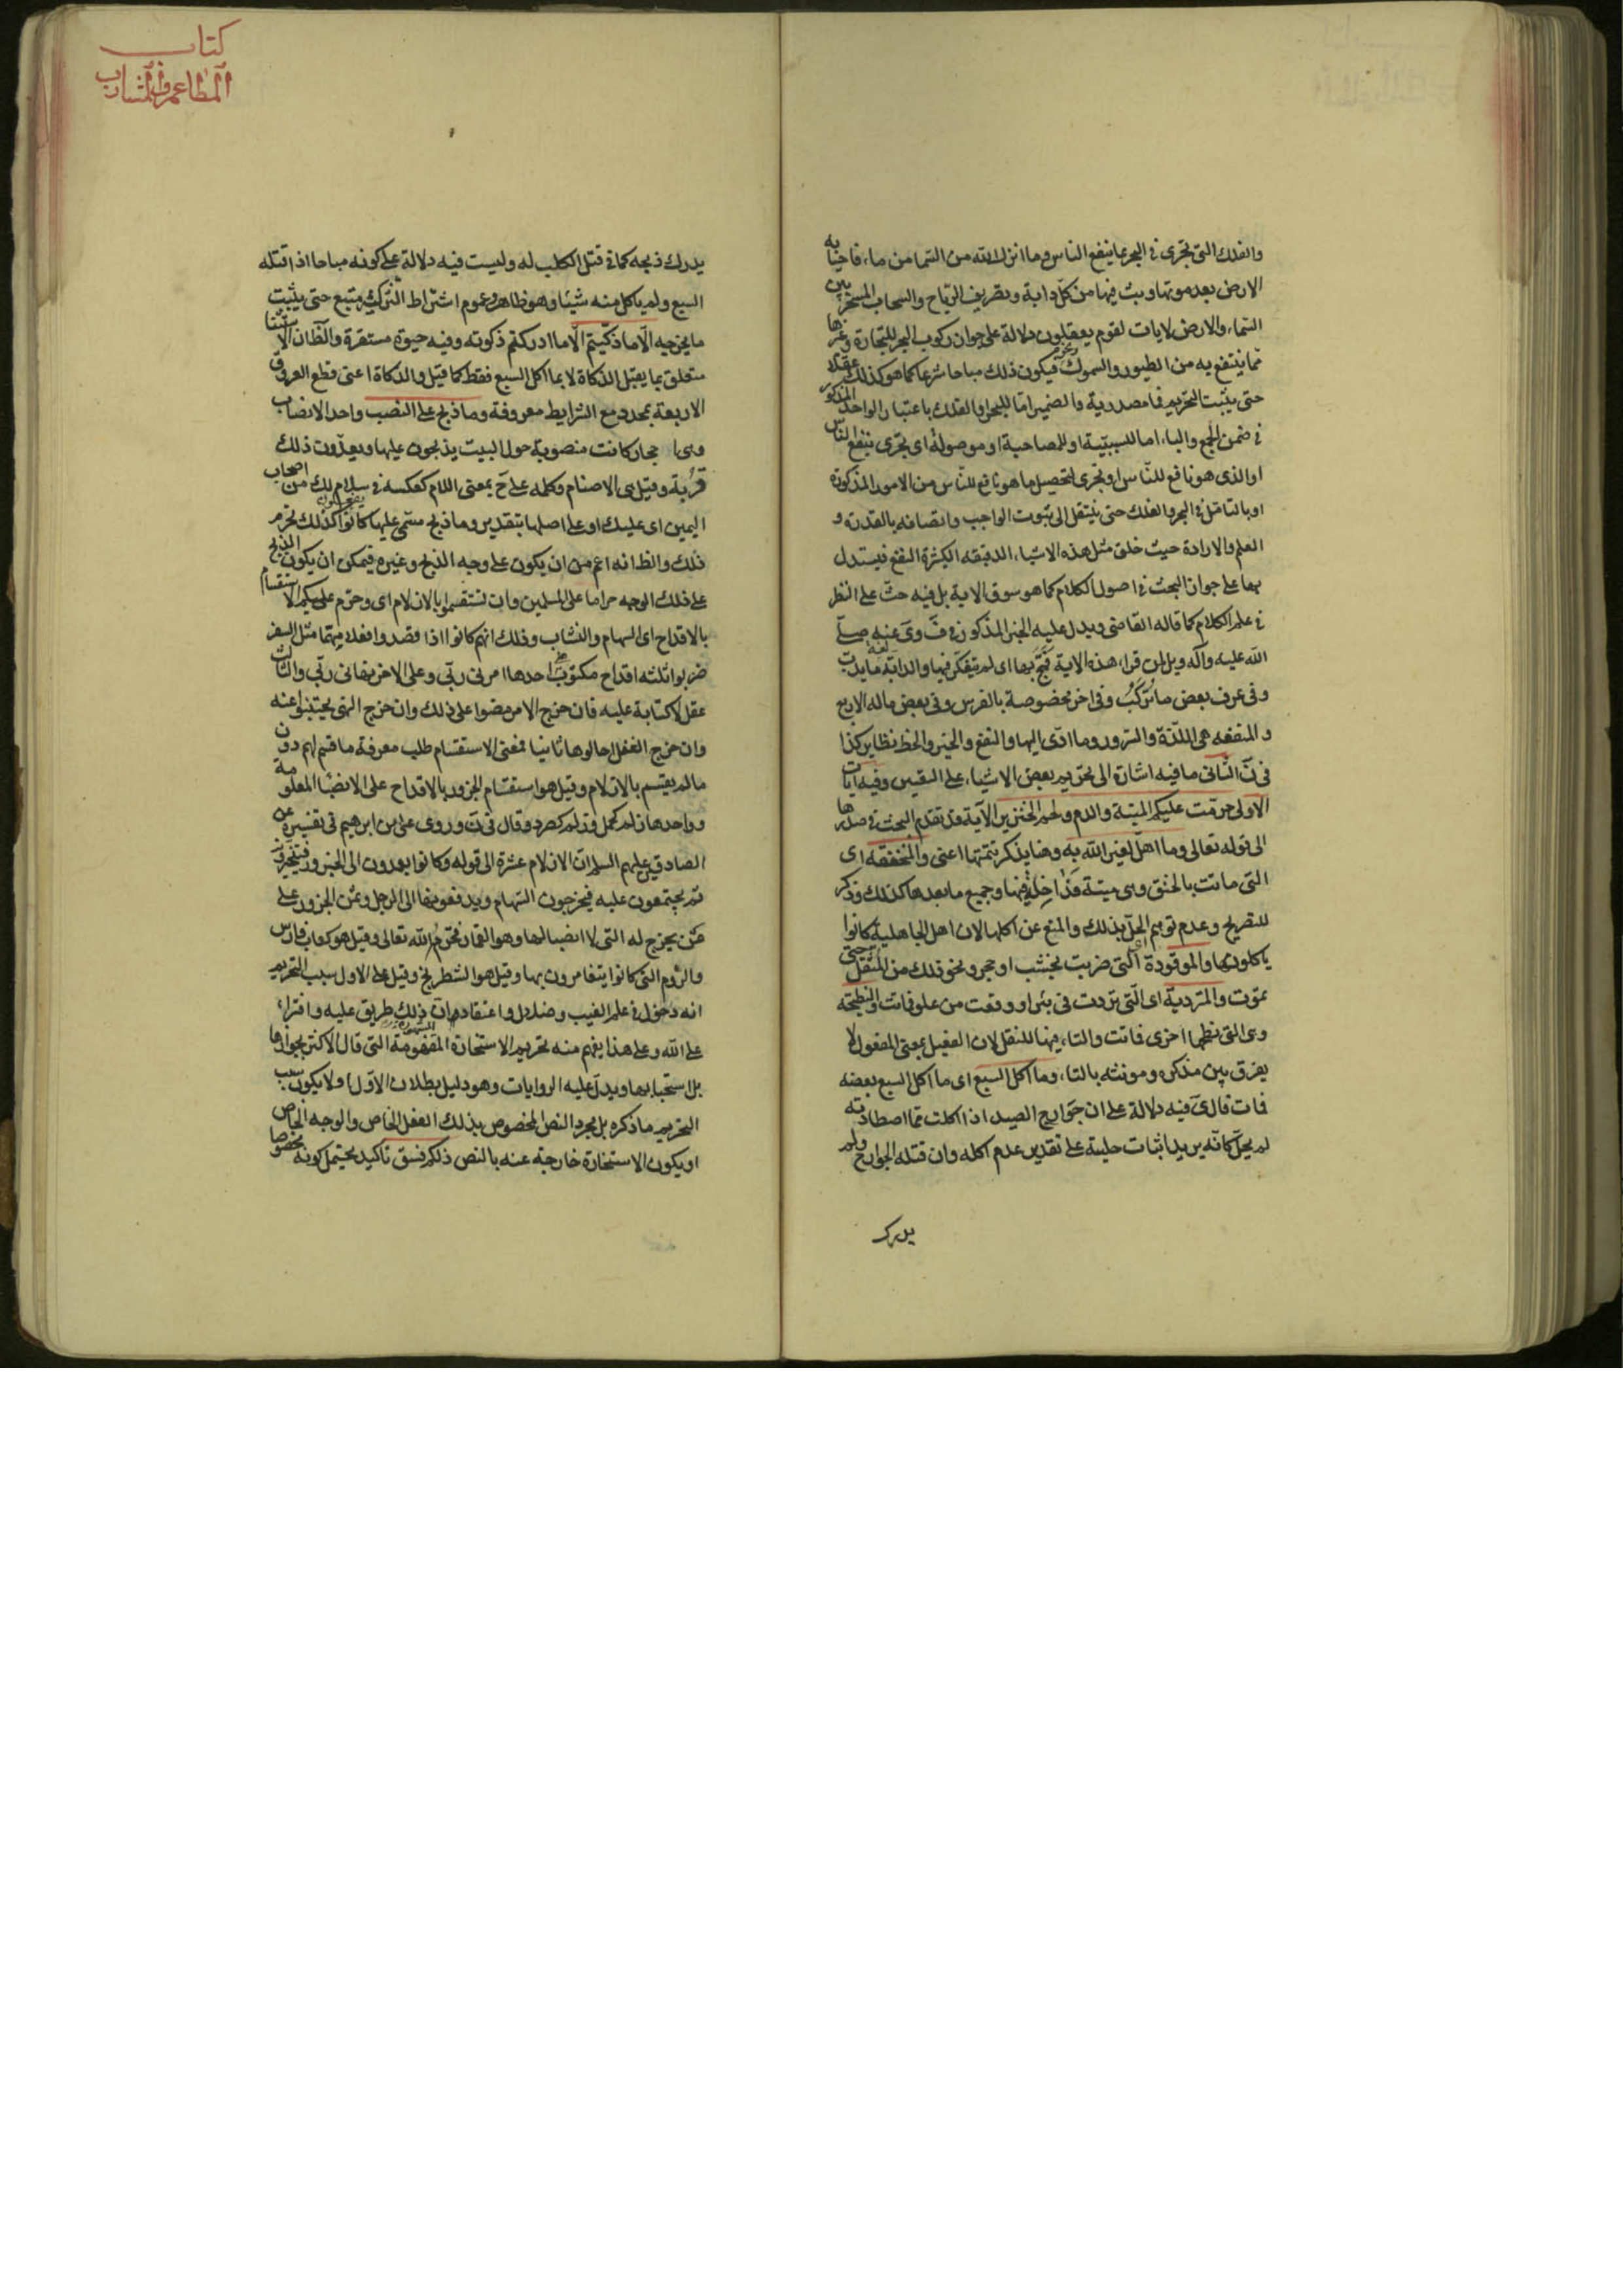 والفلك التى تجرى فى البحر بما ينفع الناس وما انزل الله من السما من ماء فاحيا به
الارض بعد موتها وبث فيها من كل دابة وتصريف الرياح والسحاب المسخر بين
السماء والارض لايات لقوم يعقلون دلالة على جواز ركوب البحر للتجارة وغيرها
مما ينتفع به من الطيور والسموك ونحوه فيكون ذلك مباحا شرعا كما هو كذلك عقلا
حتى يثبت التحريم فما مصدرية والضمير اما للبحر او الفلك باعتبار الواحد المذكور
فى ضمن الجمع والباء اما للسببية او للمصاحبة او موصولة اى تجرى بنفع الناس
او الذى هو نافع للناس او تجرى لتحصيل ما هو نافع للناس من الامور المذكورة
او بالتامل فى البحر والفلك حتى ينتقل الى ثبوت الواجب واتصافه بالقدرة و
العلم والارادة حيث خلق مثل هذه الاشياء الدقيقه الكثيرة النفع فيستدل
بها على جواز البحث فى اصول الكلام كما هو سوق الاية بل فيه حث على النظر
فى علم الكلام كما قاله القاضى ويدل عليه الخبر المذكور فى ف وى عنه صلى
الله عليه وآله ويل لمن قراء هذه الاية فمج بها اى لم يتفكر فيها والدابة لغة ما يدب
وفى عرف بعض ما تركب وفى اخر مخصوصة بالفرس وفى بعض ماله الاربع
والمنفعه هى اللذة والسرور وما ادى اليها والنفع والخير والحظ نظاير كذا
فى ن الثانى ما فيه اشارة الى تحريم بعض الاشياء على التعيين وفيه آيات
الاولى حرمت عليكم الميتة والدم ولحم الخنزير الآية قد تقدم البحث فى صدرها
الى قوله تعالى وما اهل لغير الله به وهنا يذكر تتمتها اعنى والمنخنقه اى
التى ماتت بالخنق وهى ميتة داخلة فيها وجميع ما بعدها كذلك وذكر
للتصريح وعدم توهم الحل بذلك والمنع عن اكلها لان اهل الجاهلية كانوا
ياكلونها والموقوذة اى التى ضربت بخشب او حجر ونحو ذلك من المثقل حتى
تموت والمتردية اى التى تردت فى بئر او وقعت من علو فماتت والنطيحة
وهى التى نطحها اخرى فماتت والتاء فيها للنقل لان الفعيل بمعنى المفعول لا
يفرق بين مذكره ومونثه بالتاء وما اكل السبع اى ما اكل السبع بعضه
فمات قال ى فيه دلالة على ان جوارح الصيد اذا اكلت مما اصطادته
لم يحل كانه يريد اثبات حليته على تقدير عدم اكله وان قتله الجوارح ولم
يدرك
كتاب
المطاعم والمشارب
يدرك ذبحه كما فى قتل الكلب له وليست فيه دلالة على كونه مباحا اذا قتله
السبع ولم ياكل منه شيئا وهو ظاهر وعموم اشتراط التزكية متبع حتى يثبت
ما يخرجه الا ما ذكيتم الا ما ادركتم ذكوته وفيه حيوة مستقرة والظ ان الاستثنا
متعلق بما يقبل الذكاة لا بما اكل السبع فقط كما قيل والذكاة اعنى قطع العروق
الاربعة بمحدد مع الشرايط معروفة وما ذبح على النصب واحد الانصاب
وهى احجار كانت منصوبة حول البيت يذبحون عليها ويعدون ذلك
قربة وقيل هى الاصنام وكلمه على ح بمعنى اللام كعكسه فى سلام لك من اصحاب
اليمين اى عليك او على اصلها بتقدير وما ذبح مسمى عليها كانوا يفعلون كذلك فحرم
ذلك والظ انه اعم من ان يكون على وجه الذبح وغيره فيمكن ان يكون الذبح
على ذلك الوجه حراما على المسلمين وان تستقسموا بالازلام اى وحرم عليكم الاستقسام
بالاقداح اى السهام والنشاب وذلك انهم كانوا اذا قصدوا فعلا مهما مثل السفر
ضربوا ثلثه اقداح مكتوب على احدها امرنى ربى وعلى الاخر نهانى ربى والثالث
غفل لا كتابة عليه فان خرج الامر مضوا على ذلك وان خرج النهى يجتنبوا عنه
وان خرج الغفل اجالوها ثانيا فمعنى الاستقسام طلب معرفة ما قسم لهم دون
ما لم يقسم بالازلام وقيل هو استقسام الجزور بالاقداح على الانصباء المعلومة
وواحدها زلم كجمل وزلم كصرد وقال فى ن وروى على بن ابرهيم فى تفسيره عن
الصادقين عليهم السلم ان الازلام عشرة الى قوله وكانوا يعمدون الى الجزور فيتجزونه
ثم يجتمعون عليه فيخرجون السهام ويدفعونها الى الرجل وثمن الجزور على
من يخرج له التى لا انصبا لها وهو القمار فحرمه الله تعالى وقيل هو كعاب فارس
والروم التى كانوا يتقامرون بها وقيل هو الشطرنج وقيل على الاول سبب التحريم
انه دخول فى علم الغيب وضلال واعتقاد ان ذلك طريق عليه وافتراء
على الله وعلى هذا يفهم منه تحريم الاستخارة المشهورة التى قال الاكثر بجوازها
بل استحبابها ويدل عليه الروايات وهو دليل بطلان الاول ولا يكون سبب
التحريم ما ذكره بل مجرد النص المخصوص بذلك الفعل الخاص والوجه الخاص
او يكون الاستخارة خارجة عنه بالنص ذلكم فسق تاكيد يحتمل كونه مخصوصا